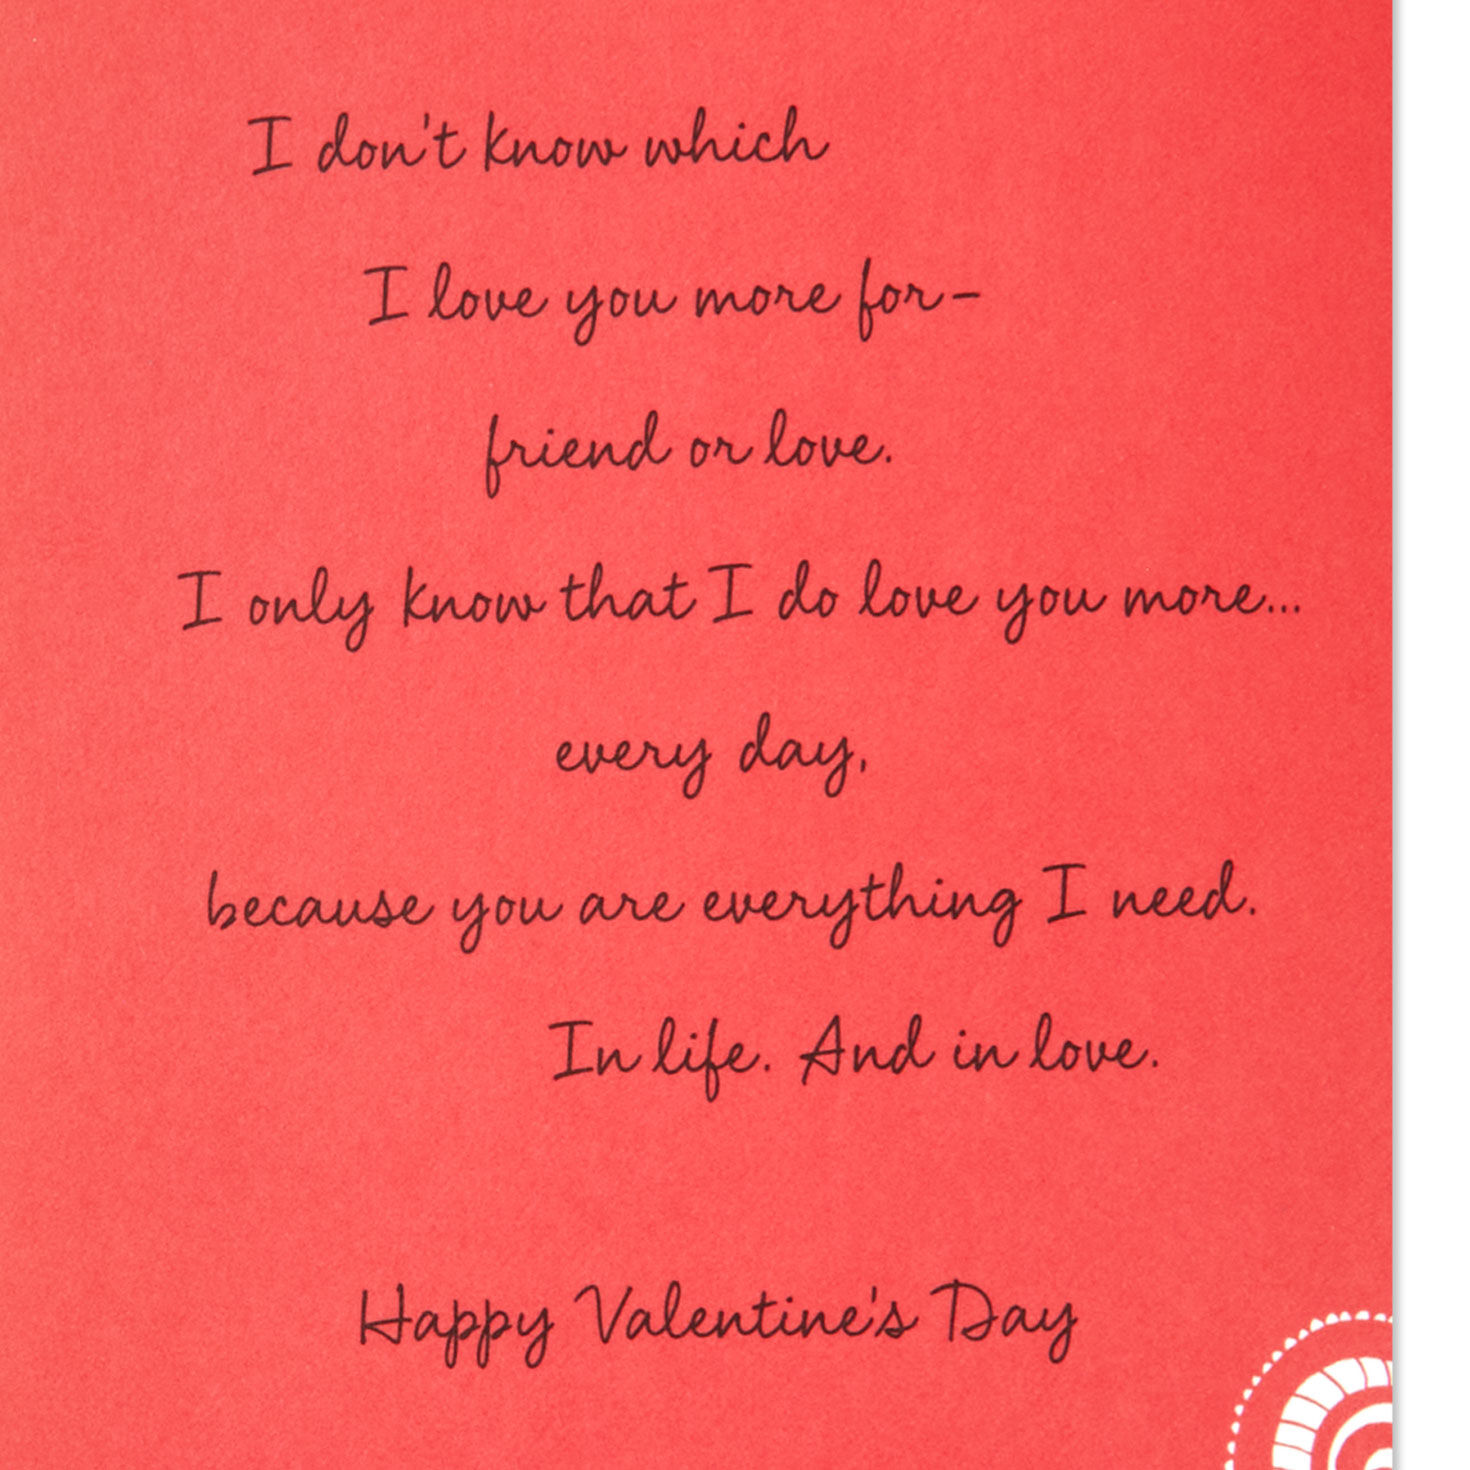 I don't know which
I love you more for–
friend or love.
I only know that I do love you more...
every day,
because you are everything I need.
In life. And in love.
Happy Valentine's Day